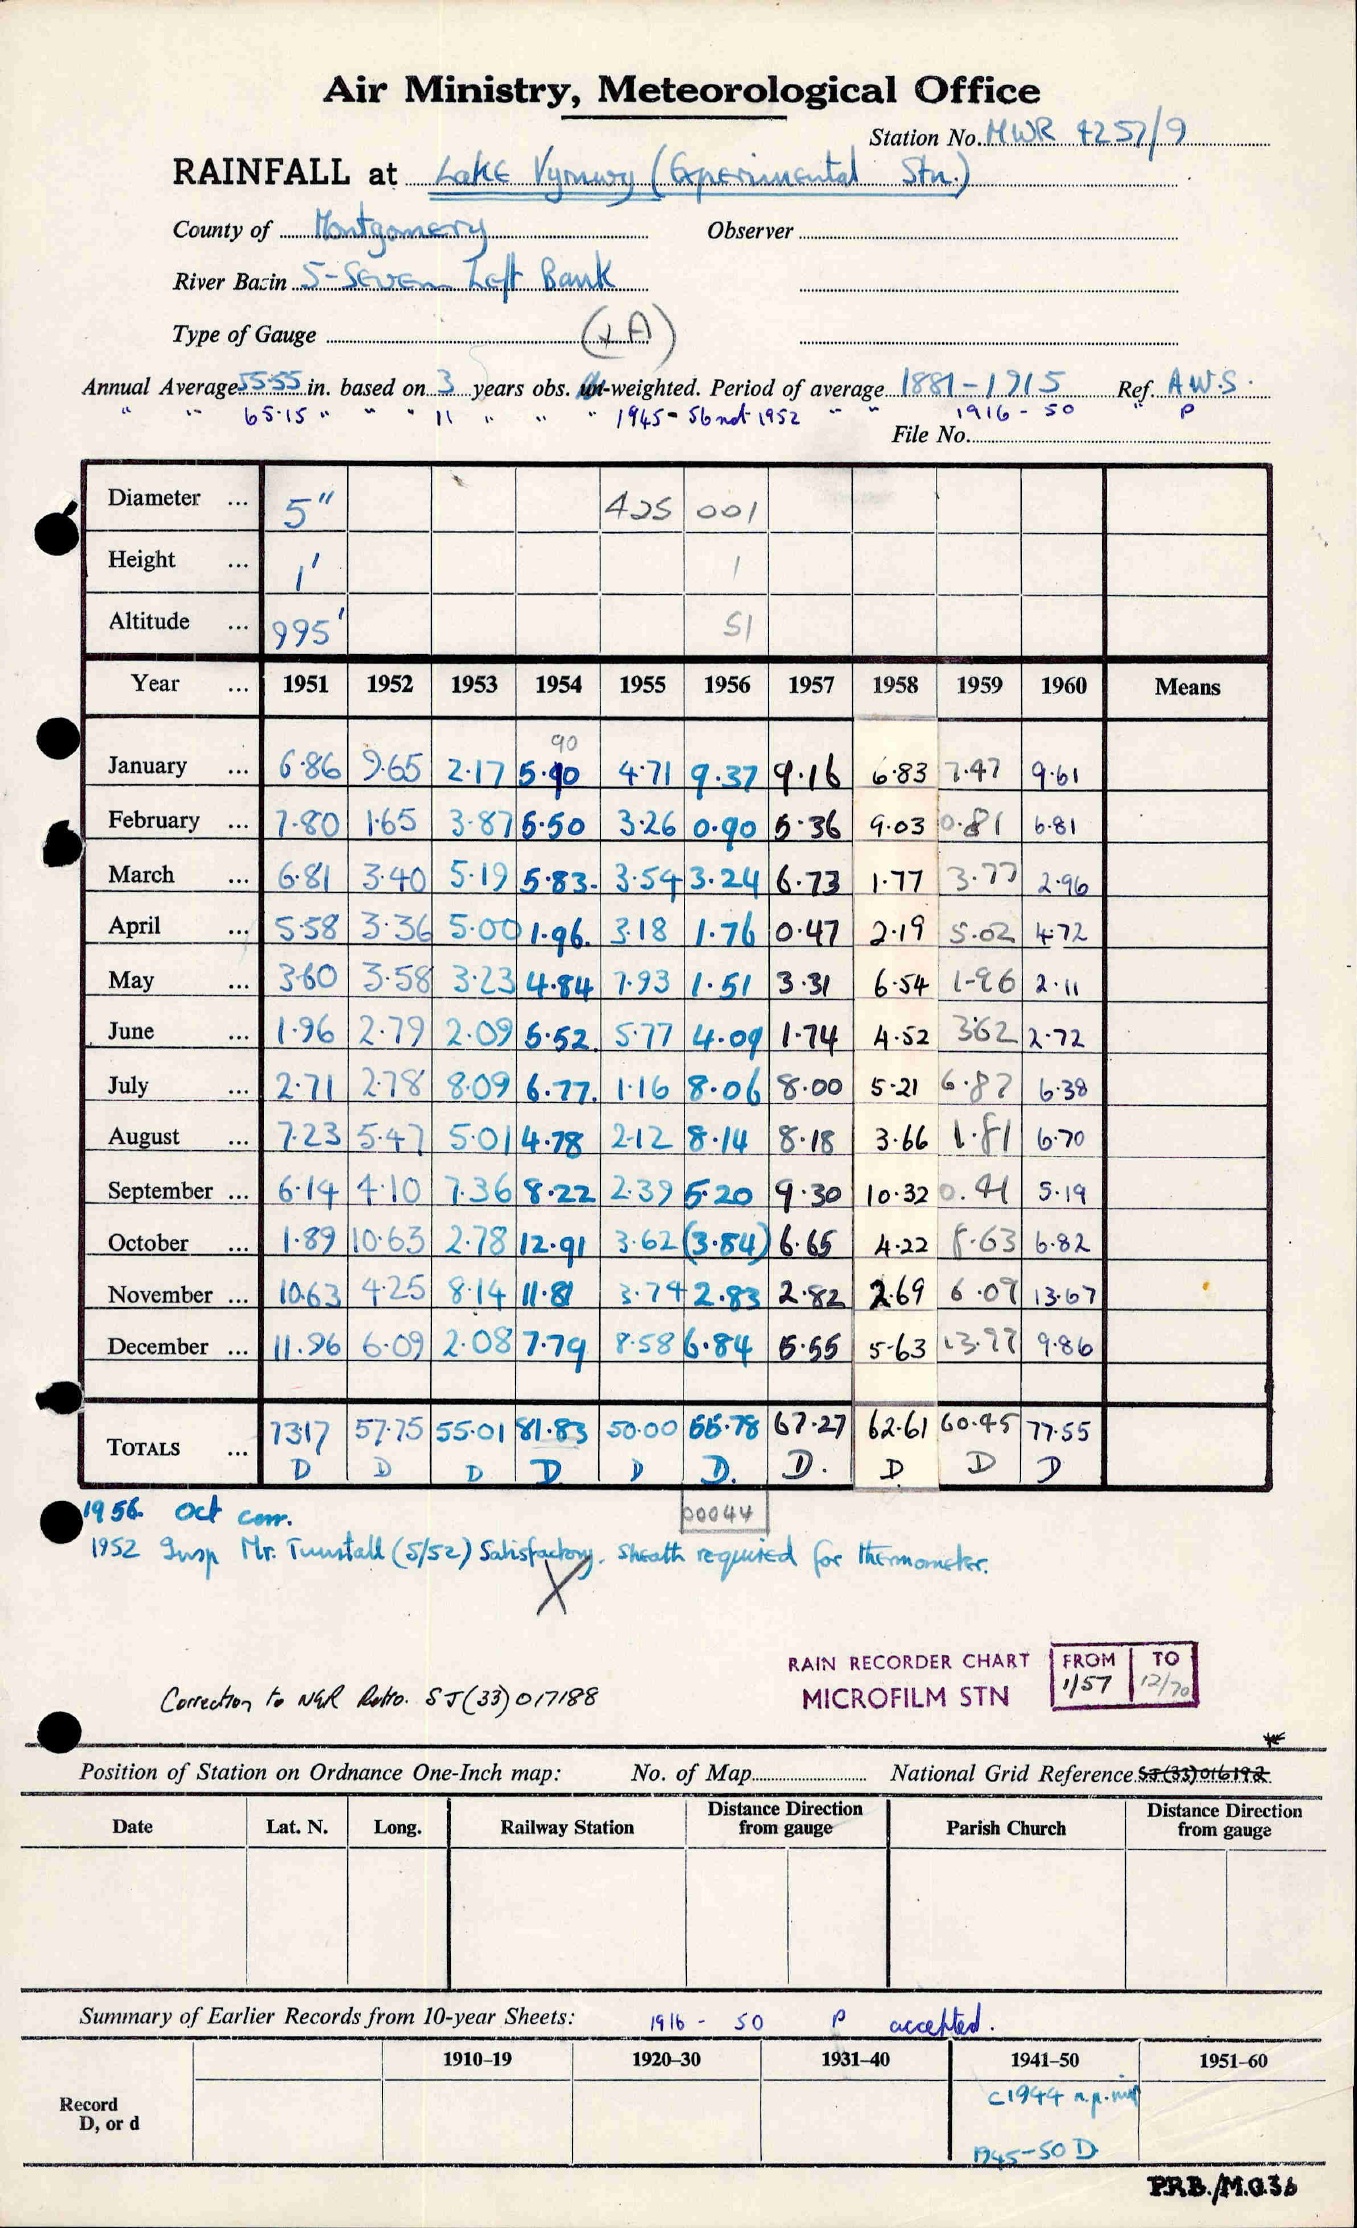 Air Ministry, Meteorological Office
Station No. MWR 4257/9
RAINFALL at Lake Vyrnwy (Experimental Stn.)
County of Montgomery Observer
River Basin 5-Severn Left Bank
Type of Gauge (+A)
Annual Average 55.55 in. based on 3 years obs. un-weighted. Period of average 1881-1915 Ref. A.W.S.
" " 65.15 " " " 11 " " " 1945-56 not 1952 " " 1916-50 " P
File No.
Diameter ... 5" 425 001
Height ... 1' 1
Altitude ... 995' 51
Year ... 1951 1952 1953 1954 1955 1956 1957 1958 1959 1960 Means
90
January ... 6.86 9.65 2.17 5.90 4.71 9.37 9.16 6.83 7.47 9.61
February ... 7.80 1.65 3.87 5.50 3.26 0.90 5.36 9.03 0.81 6.81
March ... 6.81 3.40 5.19 5.83 3.54 3.24 6.73 1.77 3.77 2.96
April ... 5.58 3.36 5.00 1.96 3.18 1.76 0.47 2.19 5.02 4.72
May ... 3.60 3.58 3.23 4.84 7.93 1.51 3.31 6.54 1.96 2.11
June ... 1.96 2.79 2.09 5.52 5.77 4.09 1.74 4.52 3.62 2.72
July ... 2.71 2.78 8.09 6.77 1.16 8.06 8.00 5.21 6.87 6.38
August ... 7.23 5.47 5.01 4.78 2.12 8.14 8.18 3.66 1.81 6.70
September ... 6.14 4.10 7.36 8.22 2.39 5.20 9.30 10.32 0.41 5.19
October ... 1.89 10.63 2.78 12.91 3.62 (3.84) 6.65 4.22 8.63 6.82
November ... 10.63 4.25 8.14 11.81 3.74 2.83 2.82 2.69 6.09 13.67
December ... 11.96 6.09 2.08 7.79 8.58 6.84 5.55 5.63 13.97 9.86
TOTALS ... 73.17 57.75 55.01 81.83 50.00 55.78 67.27 62.61 60.45 77.55
D D D D D D. D. D D D
1956. Oct corr. 00044
1952 Insp Mr. Tunstall (5/52) Satisfactory. Sheath required for thermometer.
X
RAIN RECORDER CHART FROM TO
MICROFILM STN 1/57 12/70
Correction to NGR SJ(33)017188
Position of Station on Ordnance One-Inch map: No. of Map National Grid Reference SJ(33)016192
Date Lat. N. Long. Railway Station Distance Direction from gauge Parish Church Distance Direction from gauge
Summary of Earlier Records from 10-year Sheets: 1916 - 50 P accepted.
1910–19 1920–30 1931–40 1941–50 1951–60
Record D, or d
c1944 n.p.
1945-50 D
P.R.B./M.O.36